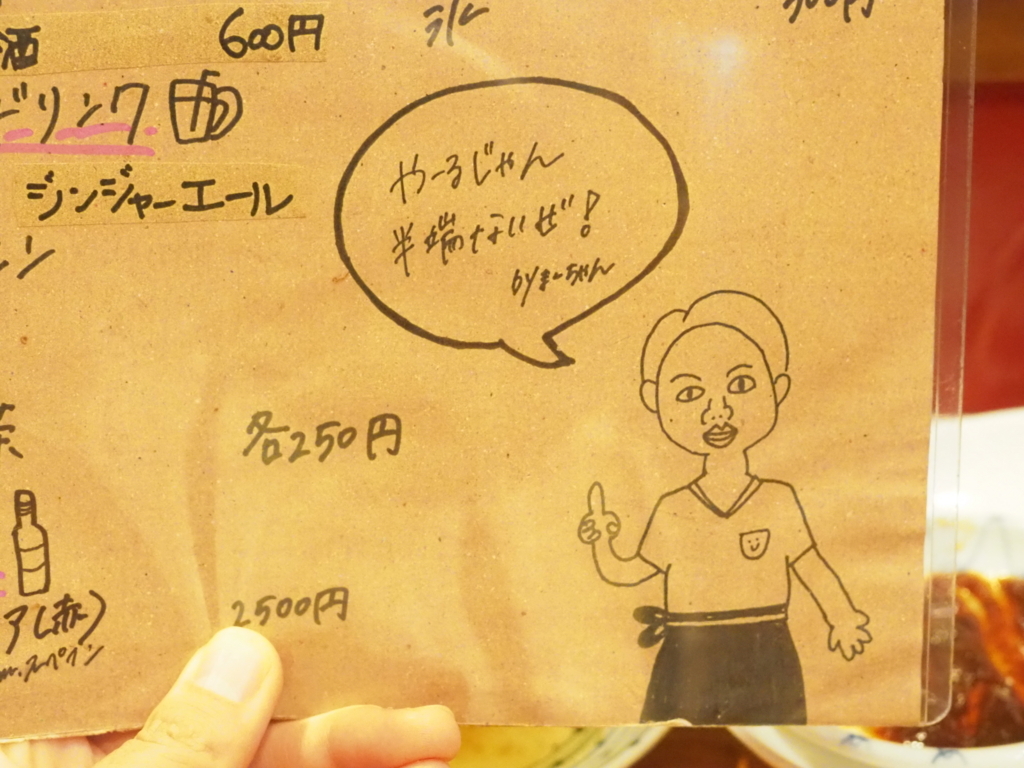 酒 600円 氷
ドリンク
ジンジャーエール
ン
やーるじゃん
半端ないぜ!
byまーちゃん
茶 各250円
ア(赤) 2500円
スペイン